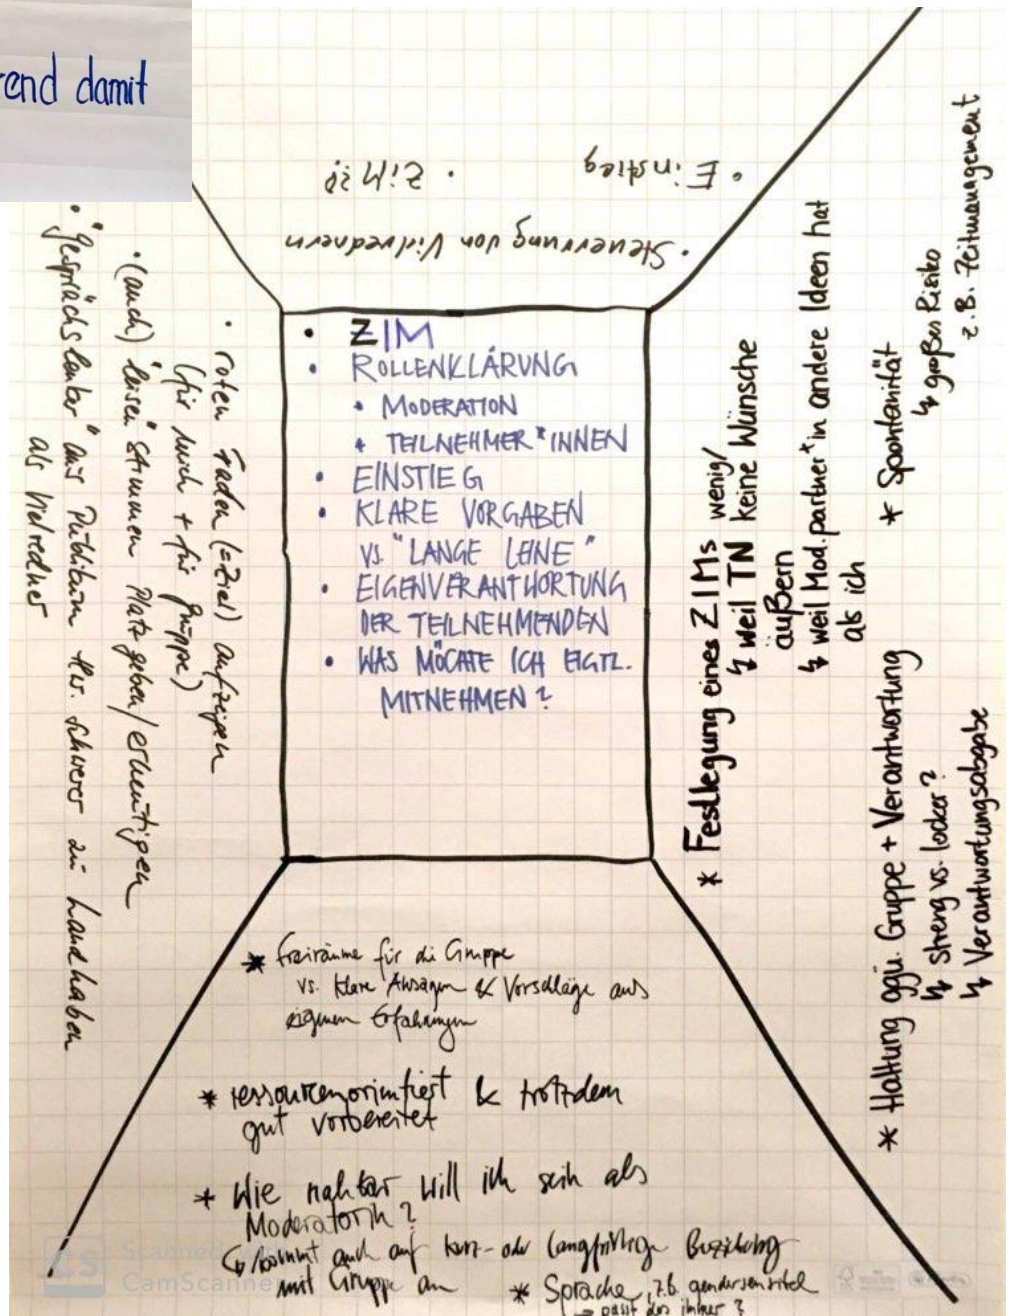 rend damit
• Einstieg
• ZIM??
• Steuerung von Vielrednern
• ZIM
• ROLLENKLÄRUNG
• MODERATION
• TEILNEHMER*INNEN
• EINSTIEG
• KLARE VORGABEN
VS. "LANGE LEINE"
• EIGENVERANTWORTUNG
DER TEILNEHMENDEN
• WAS MÖCHTE ICH EIGTL.
MITNEHMEN?
• roten Faden (=Ziel) aufzeigen
(für mich + für Gruppe)
• (auch) "leisen" Stimmen Platz geben/ermutigen
• "gesprächslenker" aus Publikum schwerer zu handhaben
als Vielredner
* Festlegung eines ZIMs
↳ weil TN wenig/
keine Wünsche
äußern
↳ weil Mod.partner*in andere Ideen hat
als ich
* Spontanität
↳ großes Risiko
z.B. Zeitmanagement
* Haltung ggü. Gruppe + Verantwortung
↳ streng vs. locker?
↳ Verantwortungsabgabe
* Freiräume für die Gruppe
vs. klare Ansagen & Vorschläge aus
eigenen Erfahrungen
* ressourcenorientiert & trotzdem
gut vorbereitet
* Wie nahbar will ich sein als
Moderatorin?
↳ kommt auch auf kurz- oder langfristige Beziehung
mit Gruppe an
* Sprache, z.B. gendersensibel
→ passt das immer?
CS Scanned with
CamScanner